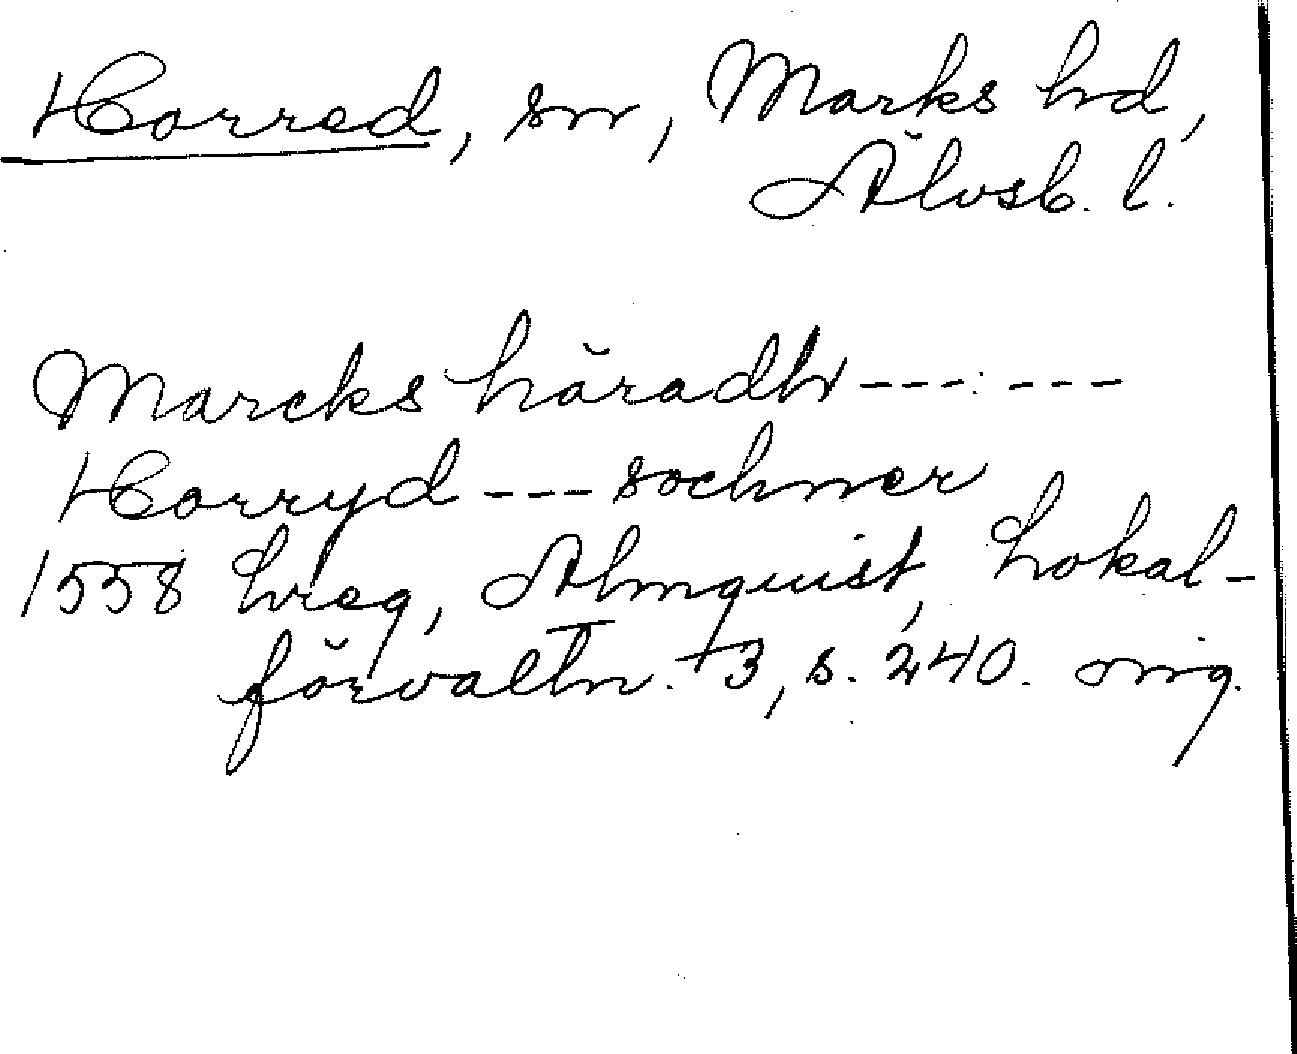 Horred, sn, Marks hd,
Älvsb. l.
Marcks häradh --- ---
Horryd --- sochner
1558 hreg, Almquist, Lokal-
förvaltn. 3, s. 240.